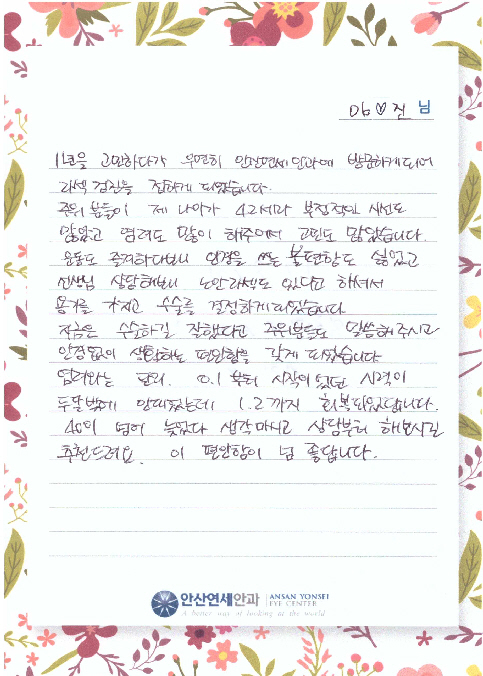 마♡진 님
11년을 고민하다가 우연히 안산연세안과에 방문하게되어
라섹 검진을 전하게 되었습니다.
주위 분들이 제 나이가 42세라 부정적인 시선도
많았고 염려도 많이 해주어서 고민도 많았습니다.
운동도 즐겨하다보니 안경을 쓰는 불편함도 싫었고
선생님 상담해보니 노안라섹도 있다고 하셔서
용기를 가지고 수술를 결정하게되었습니다
지금은 수술하길 잘했다고 주위분들도 말씀해주시고
안경없이 생활하는 편안함를 갖게 되었습니다
염려와는 달리. 0.1 부터 시작이 됬던 시력이
두달밖에 안되었는데 1.2까지 회복되었답니다.
40이 넘어 늦었다 생각마시고 상담부터 해보시길
추천드려요. 이 편안함이 넘 좋답니다.
안산연세안과 ANSAN YONSEI
EYE CENTER
A better way of looking at the world